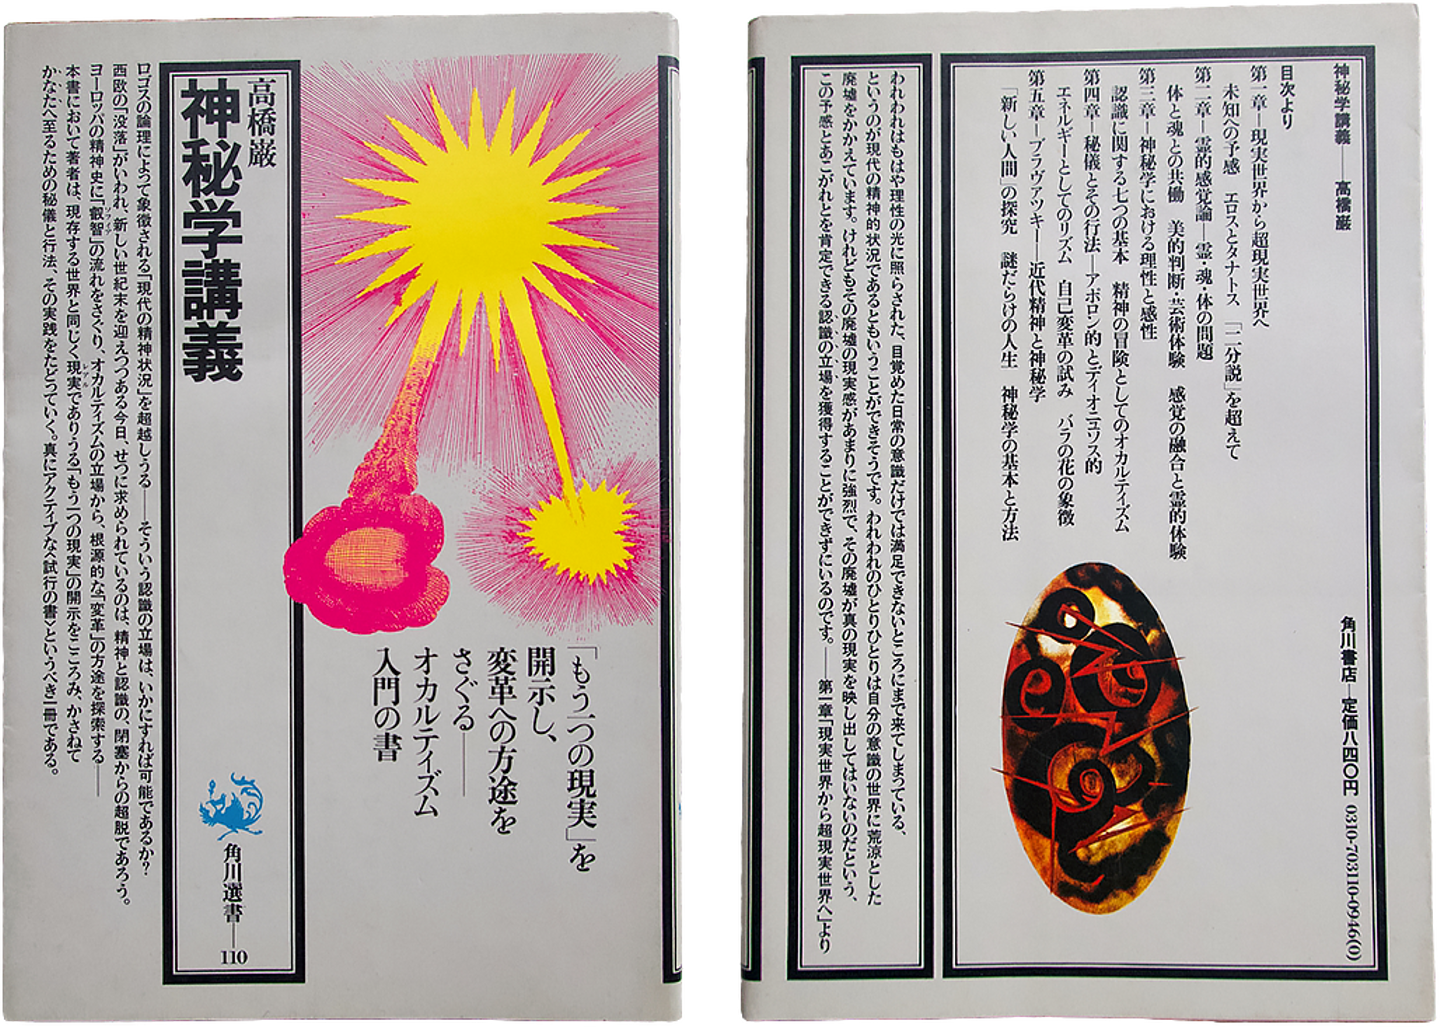 高橋巌
神秘学講義
角川選書―110
「もう一つの現実」を
開示し、
変革への方途を
さぐる――
オカルティズム
入門の書
ロゴスの論理によって象徴される「現代の精神状況」を超越しうる――そういう認識の立場は、いかにすれば可能であるか?
西欧の「没落」がいわれ、新しい世紀末を迎えつつある今日、せつに求められているのは、精神と認識の、閉塞からの超脱であろう。
ヨーロッパの精神史に「叡智」の流れをさぐり、オカルティズムの立場から、根源的な「変革」の方途を探索する――
ソフィア
本書において著者は、現存する世界と同じく現実でありうる「もう一つの現実」の開示をこころみ、かさねて
レアル
かなたへ至るための秘儀と行法、その実践をたどっていく。真にアクティブな〈試行の書〉というべき一冊である。
神秘学講義――高橋巌
角川書店―定価八四〇円 0310-703110-0946(0)
目次より
第一章―現実世界から超現実世界へ
未知への予感 エロスとタナトス 「二分説」を超えて
第二章―霊的感覚論――霊・魂・体の問題
体と魂との共働 美的判断・芸術体験 感覚の融合と霊的体験
第三章―神秘学における理性と感性
認識に関する七つの基本 精神の冒険としてのオカルティズム
第四章―秘儀とその行法――アポロン的とディオニュソス的
エネルギーとしてのリズム 自己変革の試み バラの花の象徴
第五章―ブラヴァツキー――近代精神と神秘学
「新しい人間」の探究 謎だらけの人生 神秘学の基本と方法
われわれはもはや理性の光に照らされた、目覚めた日常の意識だけでは満足できないところにまで来てしまっている、
というのが現代の精神的状況であるともいうことができそうです。われわれのひとりひとりは自分の意識の世界に荒涼とした
廃墟をかかえています。けれどもその廃墟の現実感があまりに強烈で、その廃墟が真の現実を映し出してはいないのだという、
この予感とあこがれとを肯定できる認識の立場を獲得することができずにいるのです。――第一章「現実世界から超現実世界へ」より